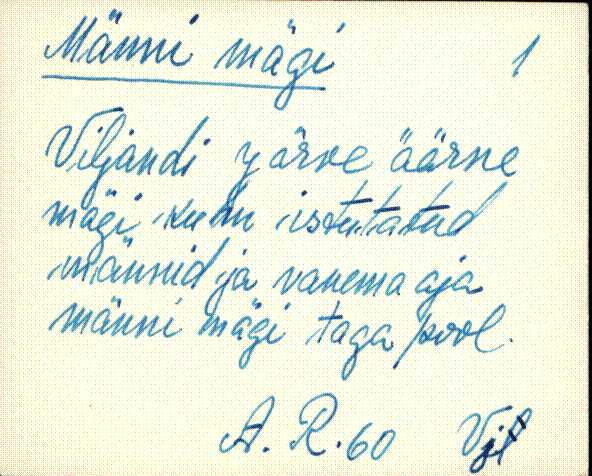 Männi mägi 1
Viljandi järve äärne
mägi kuhu istutatud
männid ja vanema aja
männi mägi taga pool.
A. R. 60 Vjl